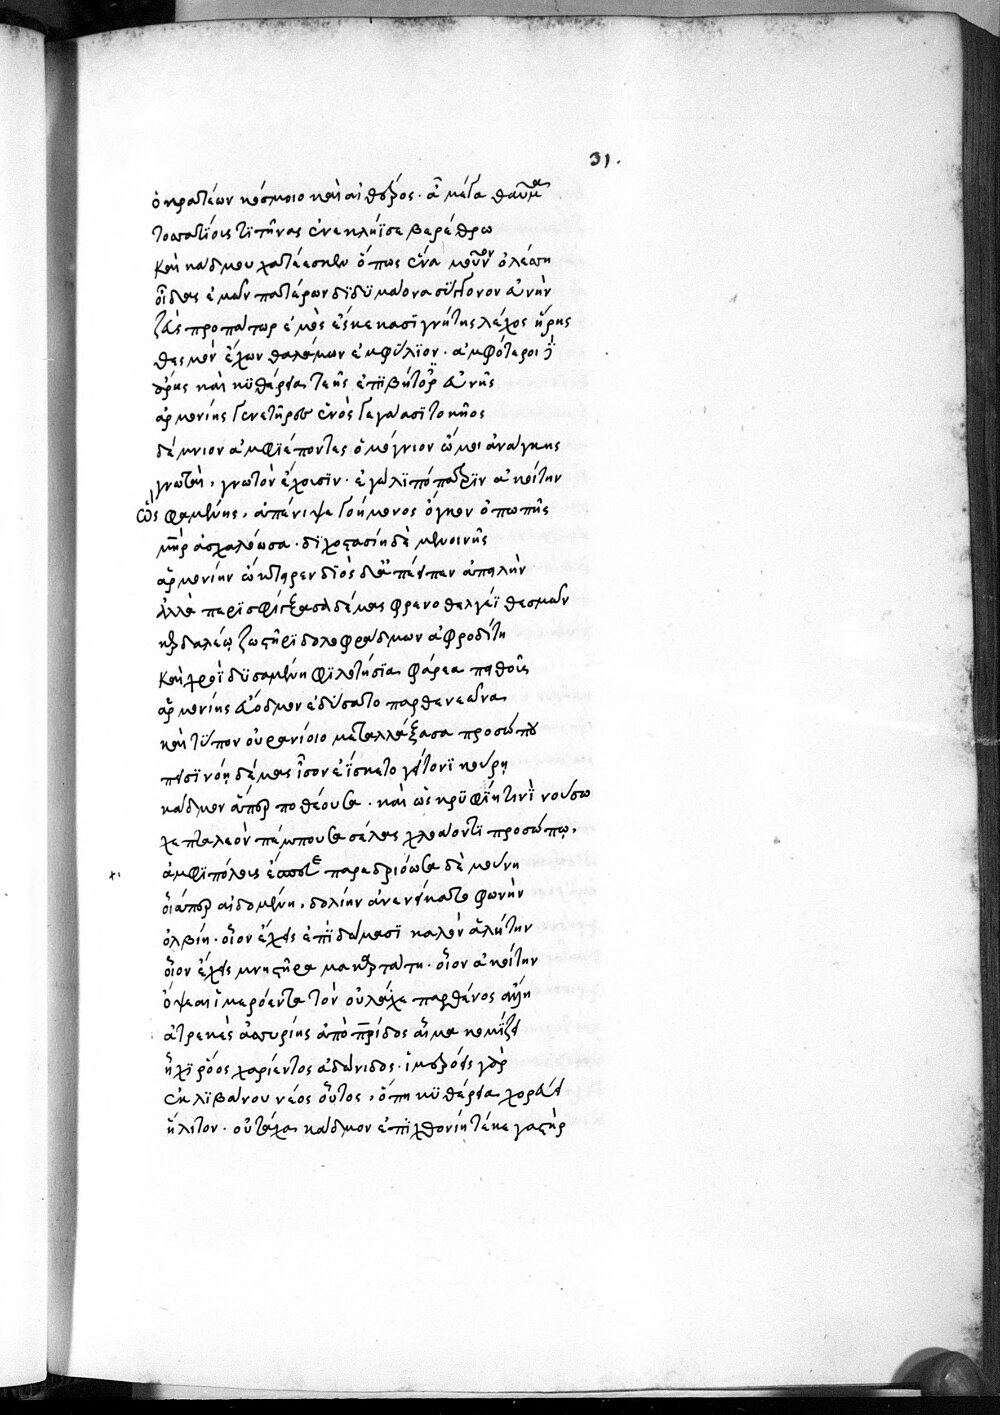 31.
ὁ κρατέων κόσμοιο καὶ αἰθέρος. ἆ μέγα θαῦμα
τοσσατίους τιτῆνας ἐνεκλήϊσε βερέθρω
καὶ κάδμου χατέεσκεν ὅπως ἕνα μοῦνον ὀλέσση
οἶδας ἐμῶν πατέρων διδυμάονα σύγγονον εὐνὴν
ζεὺς προπάτωρ ἐμὸς ἔσκε κασιγνήτης λέχος ἥρης
θεσμὸν ἔχων θαλάμων ἐμφύλιον. ἀμφότεροι
ἄρης καὶ κυθέρεια τεῆς ἐπιβήτορ εὐνῆς
ἁρμονίης γενετῆρες ἑνὸς γεγάασι τοκῆος
δέμνιον ἀμφιέποντες ὁμόγνιον ὤμοι ἀνάγκης
γνωταὶ, γνωτὸν ἔχουσιν. ἐγὼ λιπόπατριν ἀκοίτην
ὣς φαμένης, ἀπένιψε γοήμονος ὄγκον ὀπωπῆς
μηρ ἀσχαλόωσα. διχοστασίη δὲ μενοινῆς
ἁρμονίην ὤκτειρεν διὸς ἀπειλὴν
ἀλλὰ περισφίγξασα δέμας φρενοθελγέϊ θεσμῶν
κερδαλέῳ ζωστῆρι δολοφράδμων ἀφροδίτη
καὶ χροῒ δυσαμένη φιλοτήσια φάρεα πειθοῦς
ἁρμονίης εὔοδμον ἐδύσατο παρθενεῶνα
καὶ τύπον οὐρανίοιο μεταλλάξασα προσώπου
πεισινόῃ δέμας ἶσον ἐΐσκετο γείτονι κούρῃ
κάδμον ἅπερ ποθέουσα. καὶ ὡς κρυφίη τινὶ νούσω
λεπταλεὸν πέμπουσα σέλας χλοάοντι προσώπῳ,
ἀμφιπόλους παρεδριόωσα δὲ μούνη
οἷάπερ αἰδομένη, δολίην ἀνενείκατο φωνὴν
ὀλβίη. οἷον ἔχεις ἐπὶ δώμασι καλὸν ἀλήτην
οἷον ἔχεις μνηστῆρα μακαρτάτη. οἷον ἀκοίτην
ὄψεαι ἱμερόεντα τὸν οὐ λάχε παρθένος ἄλλη
ἀτρεκὲς ἀσσυρίης ἀπὸ πρίδος αἷμα κομίζει
ἧχι ῥόος χαρίεντος ἀδώνιδος. ἱμερόεις γὰρ
ἐκ λιβάνου νέος οὗτος, ὅπη κυθέρεια χορεύει
ἤλιτον. οὐ τάχα κάδμον ἐπιχθονίη τέκε γαστὴρ